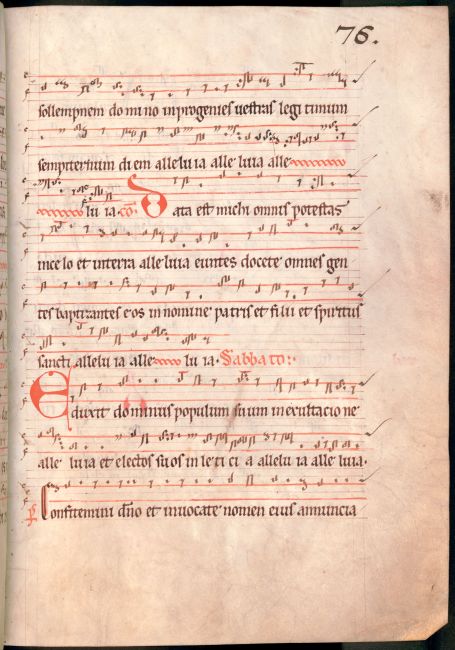 76.
sollempnem domino in progenies uestras legitimum
sempiternum diem alleluia alleluia alle
luia. co. Data est michi omnis potestas
in celo et in terra alleluia euntes docete omnes gen
tes baptizantes eos in nomine patris et filii et spiritus
sancti alleluia alleluia. Sabbato:
Eduxit dominus populum suum in exultacione
alleluia et electos suos in leticia alleluia alleluia.
ps Confitemini dno et inuocate nomen eius annuncia